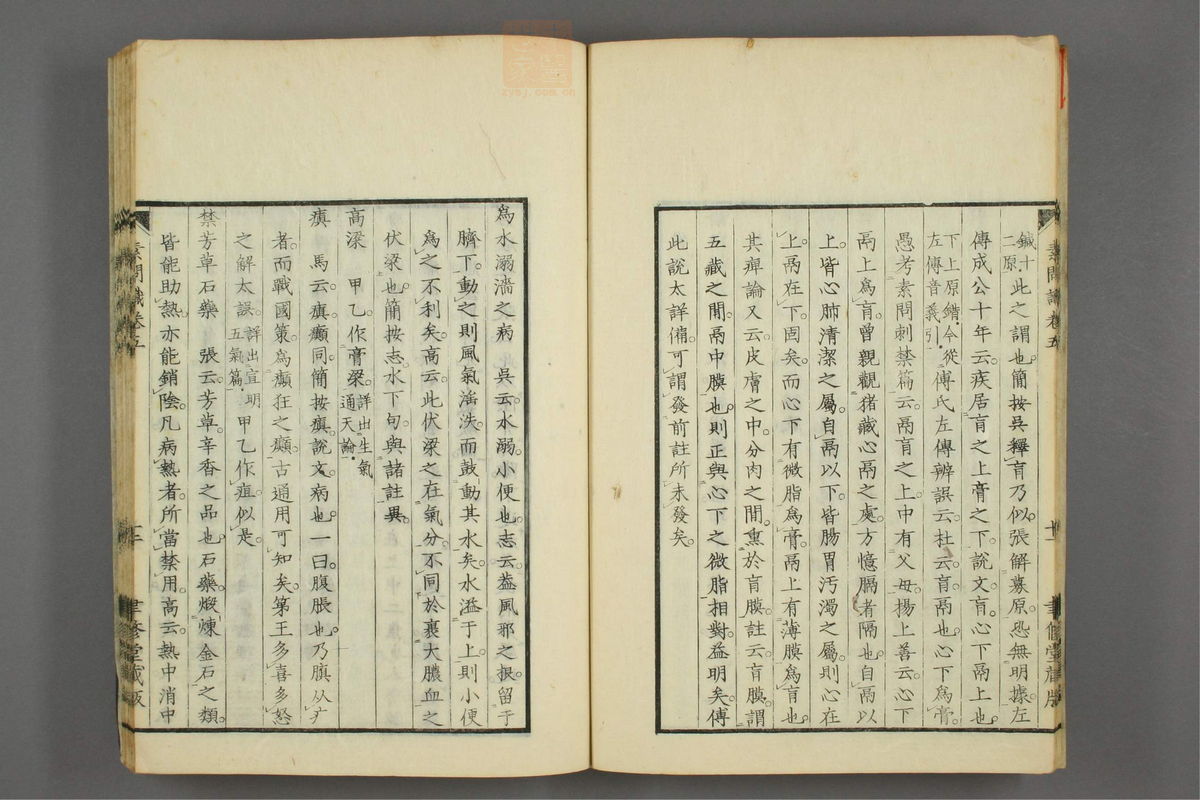 素問識卷五 十一 聿修堂藏版
鍼十二原此之謂也。簡按吳釋肓乃似。張解募原。恐無明據。左
傳成公十年云。疾居肓之上膏之下。說文。肓。心下鬲上也。
下上原錯。今從左傳音義引。傅氏左傳辨誤云。杜云。肓。鬲也。心下爲膏。
愚考素問刺禁篇云。鬲肓之上。中有父母。揚上善云。心下
鬲上爲肓。曾親觀猪藏心鬲之處。方憶膈者隔也。自鬲以
上。皆心肺清潔之屬。自鬲以下。皆腸胃汚濁之屬。則心在
上。鬲在下。固矣。而心下有微脂爲膏。鬲上有薄膜爲肓也。
其痺論又云。皮膚之中。分肉之間。熏於肓膜。註云。肓膜。謂
五藏之間。鬲中膜也。則正與心下之微脂相對。益明矣。傅
此說太詳備。可謂發前註所未發矣。
爲水溺濇之病 吳云。水溺。小便也。志云。葢風邪之根。留于
臍下。動之則風氣淫泆。而鼓動其水矣。水溢于上。則小便
爲之不利矣。高云。此伏梁之在氣分。不同於裹大膿血之
伏梁也。簡按志水下句。與諸註異。
高梁 甲乙。作膏梁。詳出生氣通天論。
瘨 馬云。瘨。癲同。簡按瘨。說文。病也。一曰腹脹也。乃䐜从疒
者。而戰國策。爲癲狂之癲。古通用可知矣。第王多喜多怒
之解太誤。詳出宣明五氣篇。甲乙作疽似是。
禁芳草石藥 張云。芳草。辛香之品也。石藥。煅煉金石之類。
皆能助熱。亦能銷陰。凡病熱者。所當禁用。高云。熱中消中
素問識卷五 聿修堂藏版
zysj.com.cn